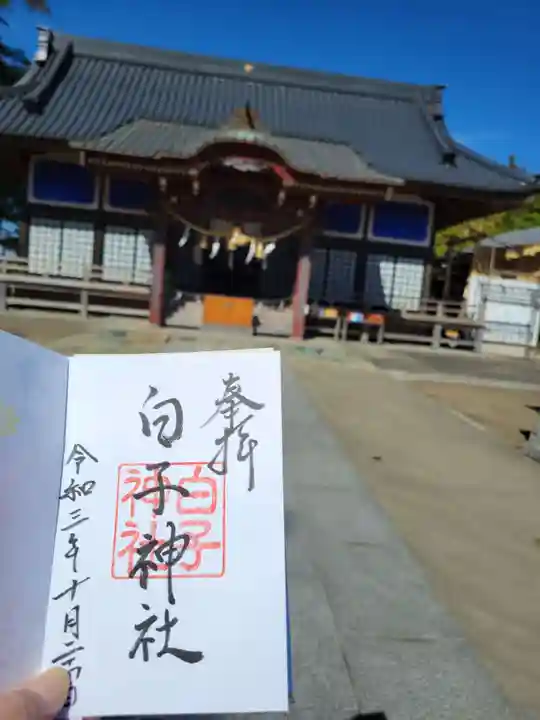 奉拝
白子神社
白子
神社
令和三年十月二十四日